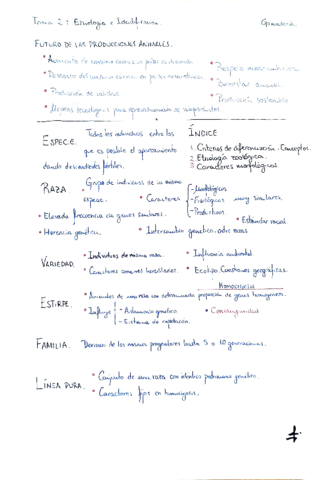 Tema 2: Etnología e Identificación.
Ganadería
FUTURO DE LAS PRODUCCIONES ANIMALES.
• Aumento de consumo cárnico en países en desarrollo
• Descenso del consumo cárnico en países desarrollados
• Producción de calidad
• Mejoras tecnológicas para aprovechamiento de subproductos
• Respeto medioambiente
• Bienestar animal
• Producción sostenible
ESPECIE.
Todos los individuos entre los
que es posible el apareamiento
dando descendientes fértiles.
ÍNDICE
1. Criterios de diferenciación. Conceptos.
2. Etnología zoológica.
3. Caracteres morfológicos
RAZA.
• Grupo de individuos de la misma
especie.
• Caracteres
- Morfológicos
- Fisiológicos
- Productivos.
muy similares.
• Elevada frecuencia de genes similares.
• Estándar racial
• Herencia genética.
• Intercambio genético otras razas
VARIEDAD.
• Individuos de misma raza.
• Caracteres comunes hereditarios.
• Influencia ambiental
• Ecotipo. Condiciones geográficas.
Homocigosis
ESTIRPE.
• Animales de una raza con determinada proporción de genes homogéneos.
• Influye
- Aislamiento genético.
- Sistema de explotación.
• Consanguinidad
FAMILIA.
Derivan de los mismos progenitores hasta 5 o 10 generaciones.
LÍNEA PURA.
• Conjunto de una raza con idéntico patrimonio genético.
• Caracteres fijos en homocigosis.